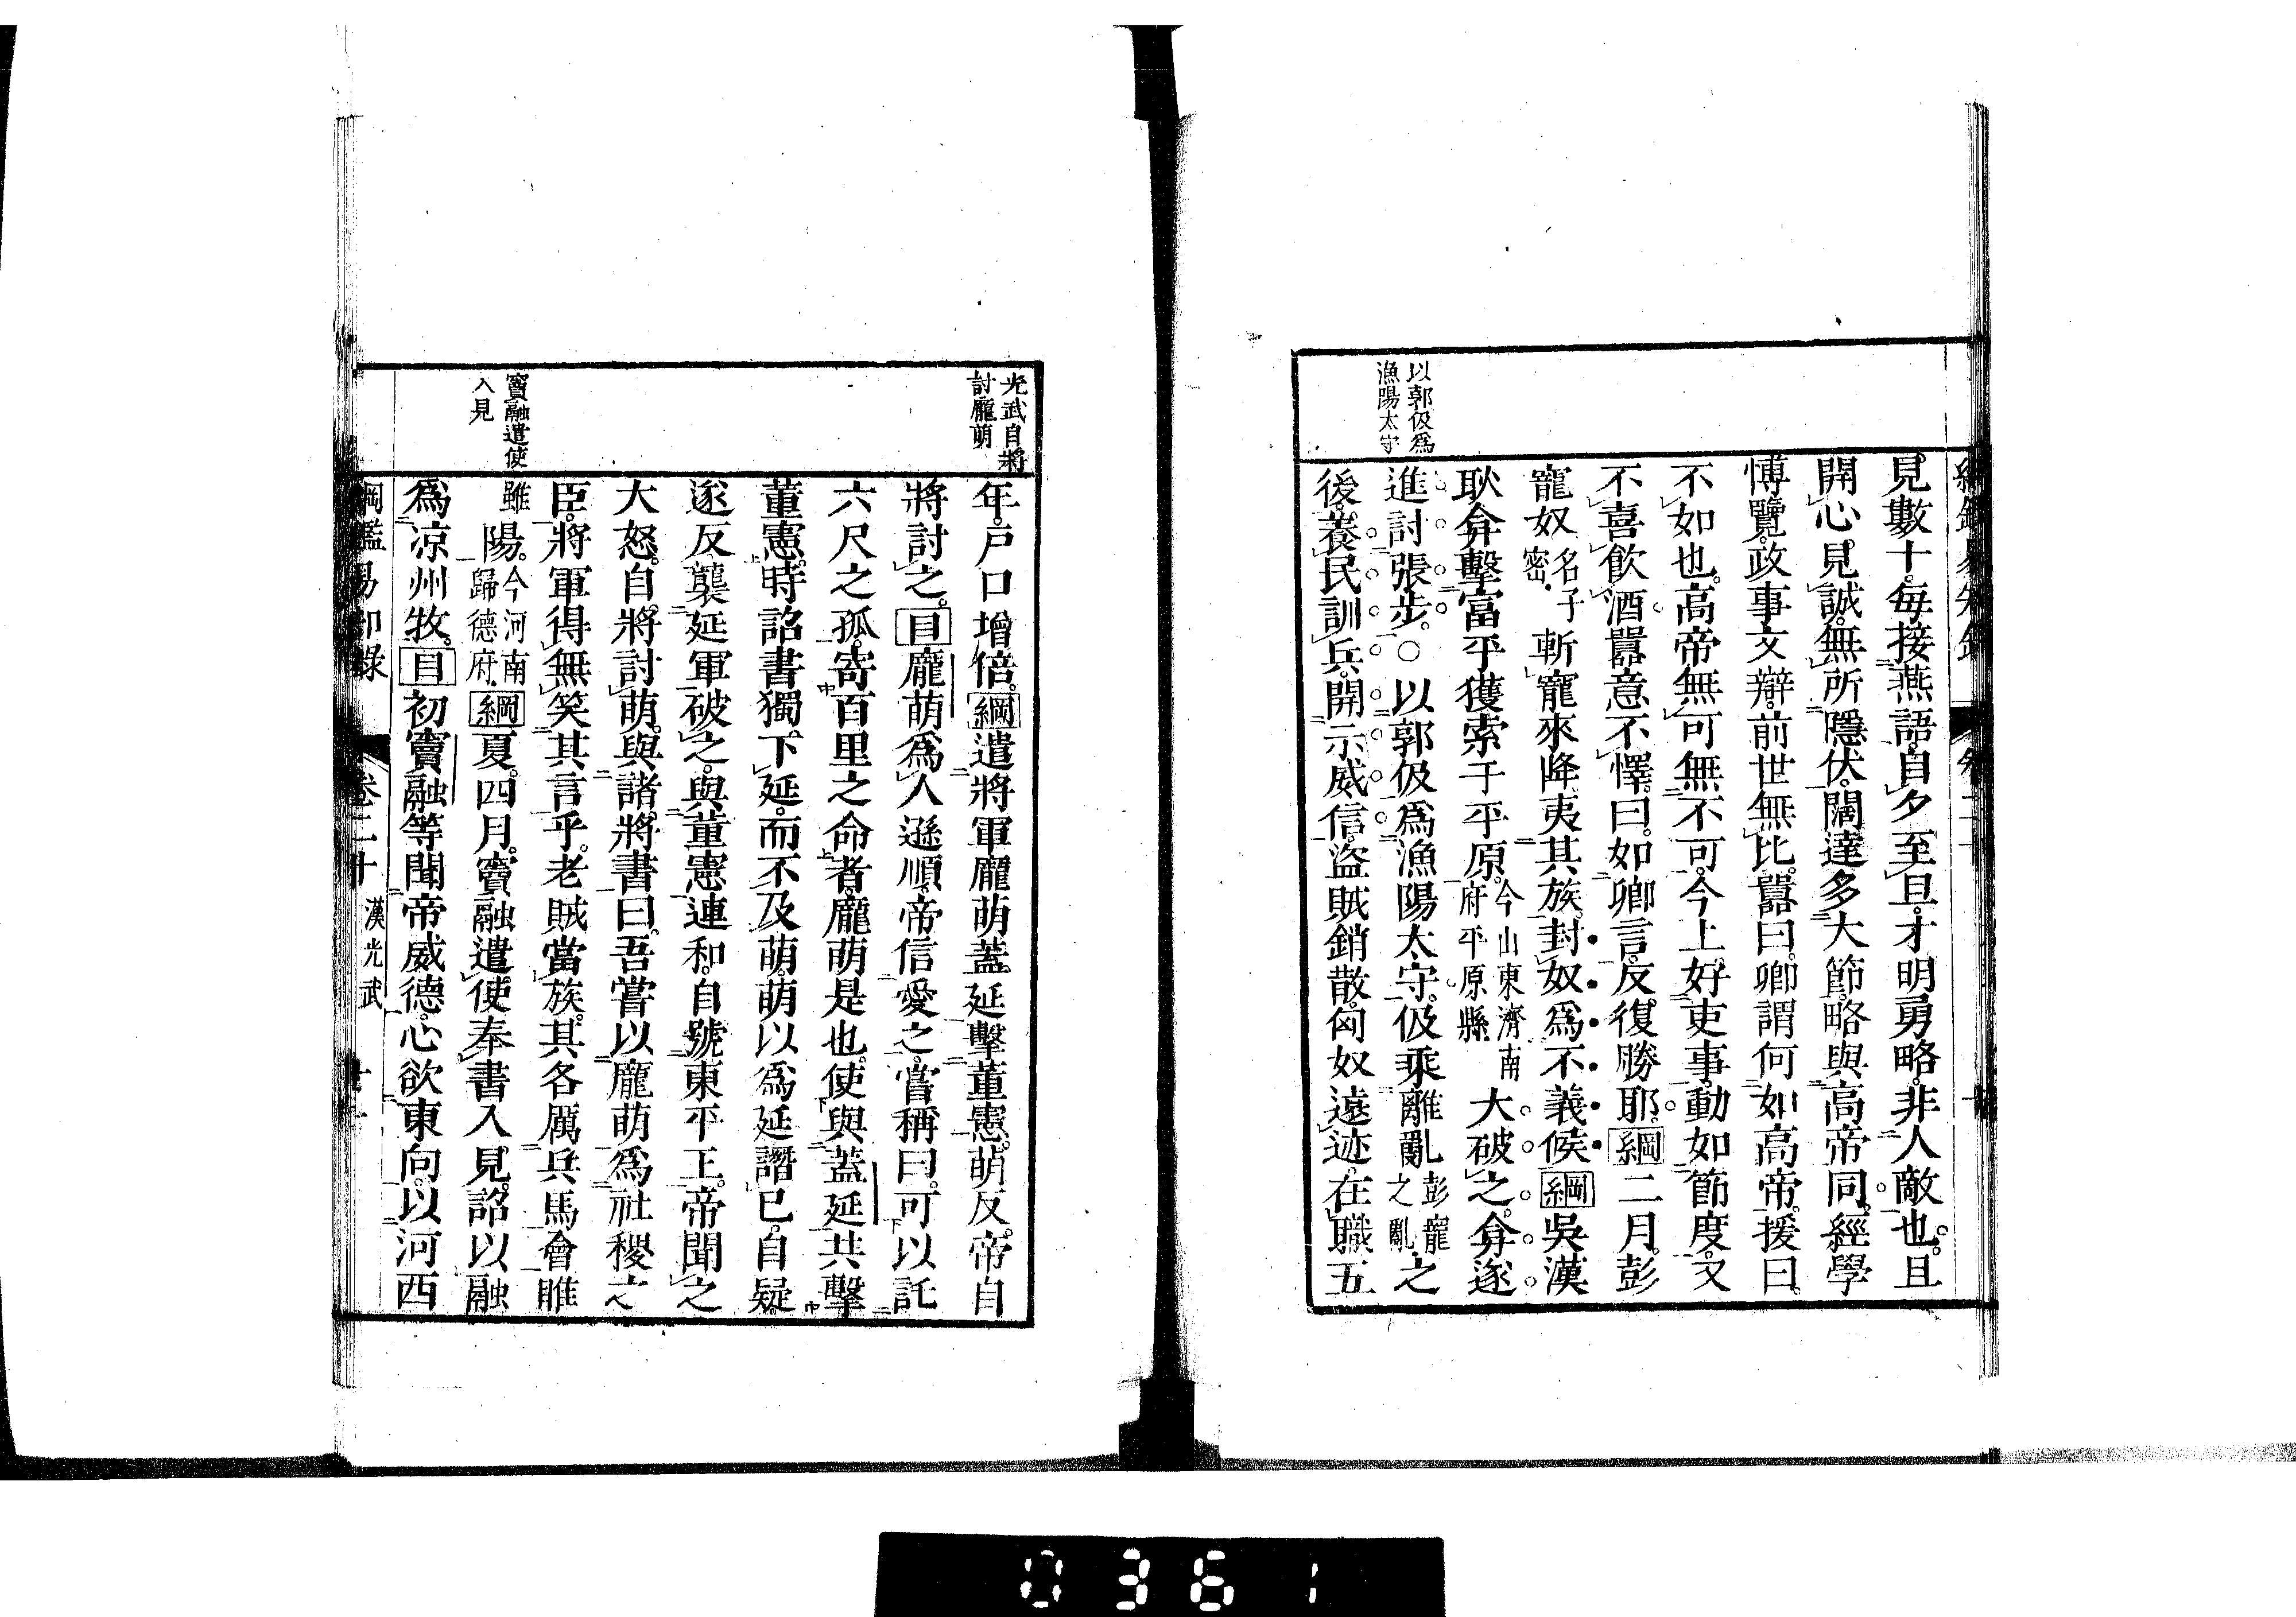 見數十每接燕語自夕至旦才明勇略非人敵也且
開心見誠無所隱伏闊達多大節略與高帝同經學
博覽政事文辯前世無比囂曰卿謂何如高帝援曰
不如也高帝無可無不可今上好吏事動如節度又
不喜飲酒囂意不懌曰如卿言反復勝耶綱二月彭
寵奴名子密斬寵來降夷其族封奴爲不義侯綱吳漢
耿弇擊富平獲索于平原今山東濟南府平原縣大破之弇遂
進討張步〇以郭伋爲漁陽太守伋乘離亂彭寵之亂之
後養民訓兵開示威信盜賊銷散匈奴遠迹在職五
以郭伋爲
漁陽太守
光武自將
討龐萌
年戶口增倍綱遣將軍龐萌蓋延擊董憲萌反帝自
將討之目龐萌爲人遜順帝信愛之嘗稱曰可以託
六尺之孤寄百里之命者龐萌是也使與蓋延共擊
董憲時詔書獨下延而不及萌萌以爲延譖已自疑
遂反襲延軍破之與董憲連和自號東平王帝聞之
大怒自將討萌與諸將書曰吾嘗以龐萌爲社稷之
臣將軍得無笑其言乎老賊當族其各厲兵馬會睢
雖陽今河南歸德府綱夏四月竇融遣使奉書入見詔以融
爲凉州牧目初竇融等聞帝威德心欲東向以河西
竇融遣使
入見
綱鑑易知錄 卷二十 漢光武
0361